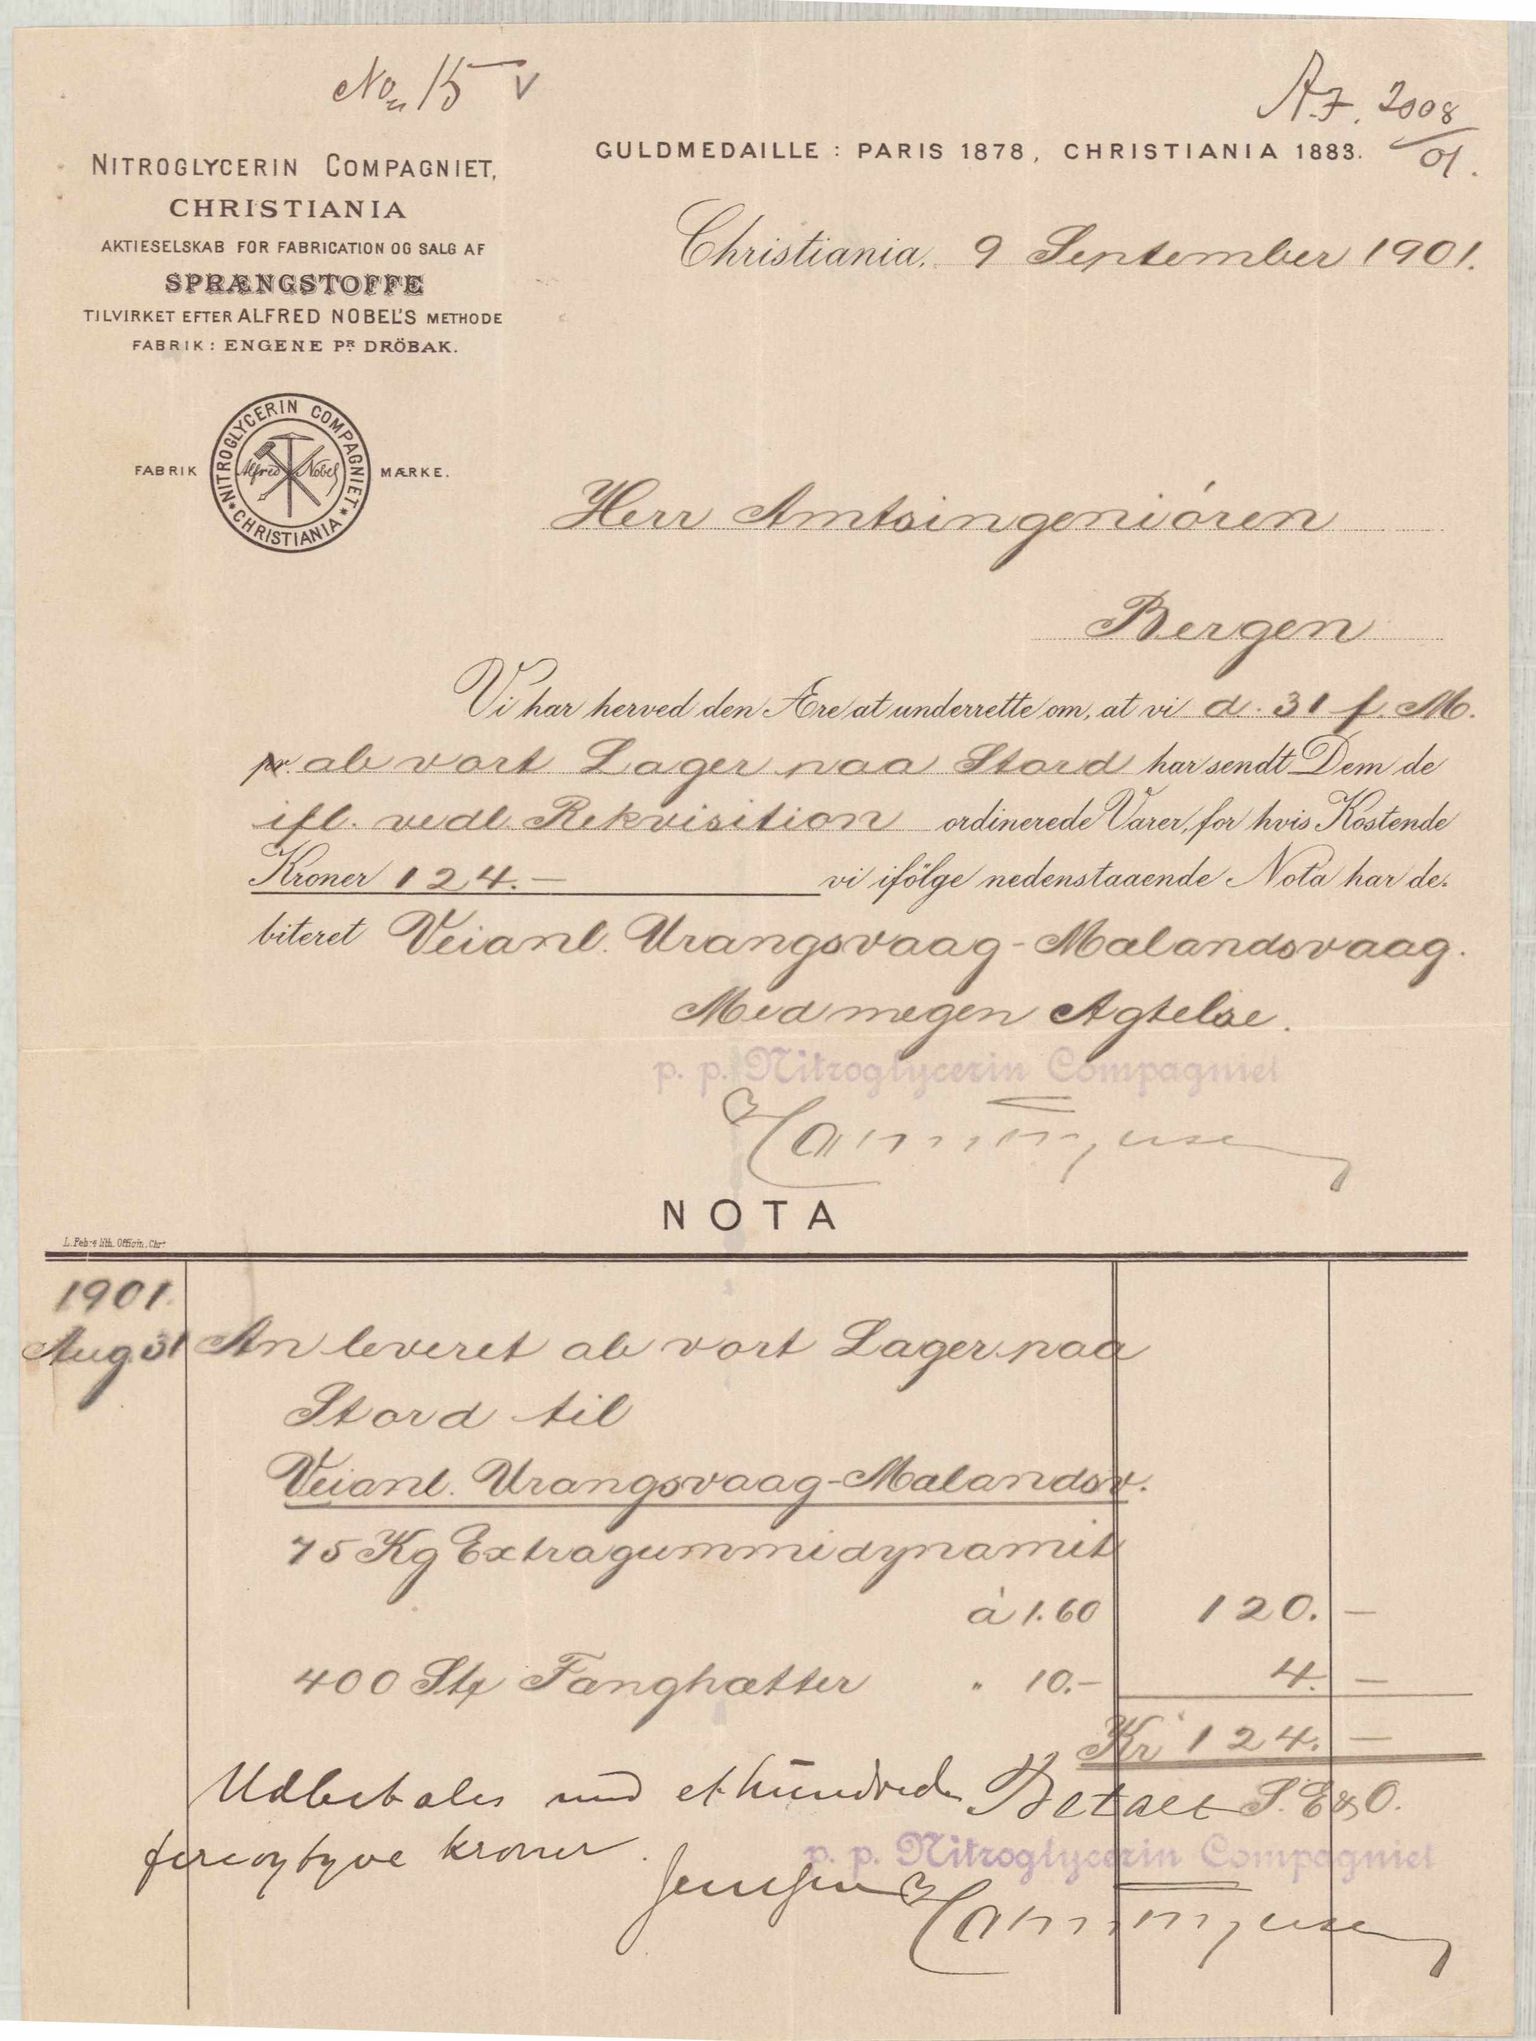 No 15 v
A.J. 2008/01.
NITROGLYCERIN COMPAGNIET,
CHRISTIANIA
AKTIESELSKAB FOR FABRICATION OG SALG AF
SPRÆNGSTOFFE
TILVIRKET EFTER ALFRED NOBEL'S METHODE
FABRIK: ENGENE PR DRÖBAK.
FABRIK MÆRKE.
NITROGLYCERIN COMPAGNIET * CHRISTIANIA *
Alfred Nobel
GULDMEDAILLE : PARIS 1878, CHRISTIANIA 1883.
Christiania, 9 September 1901.
Herr Amtsingeniören
Bergen
Vi har herved den Ære at underrette om, at vi d. 31 f. M.
pr. ab vort Lager paa Stord har sendt Dem de
ifl. vedl. Rekvisition ordinerede Varer, for hvis Kostende
Kroner 124.— vi ifölge nedenstaaende Nota har de-
biteret Veianl. Urangsvaag-Malandsvaag.
Med megen Agtelse.
p. p. Nitroglycerin Compagniet
NOTA
L. Fehr's lith. Officin, Chr.
1901.
Aug. 31 An leveret ab vort Lager paa
Stord til
Veianl. Urangsvaag-Malandsv.
75 Kg Extragummidynamit
à 1.60 120. —
400 Stk Fænghætter " 10.— 4. —
Kr 124. —
Udbetales med et hundrede Betalt S. E & O.
fireogtyve kroner.
p. p. Nitroglycerin Compagniet